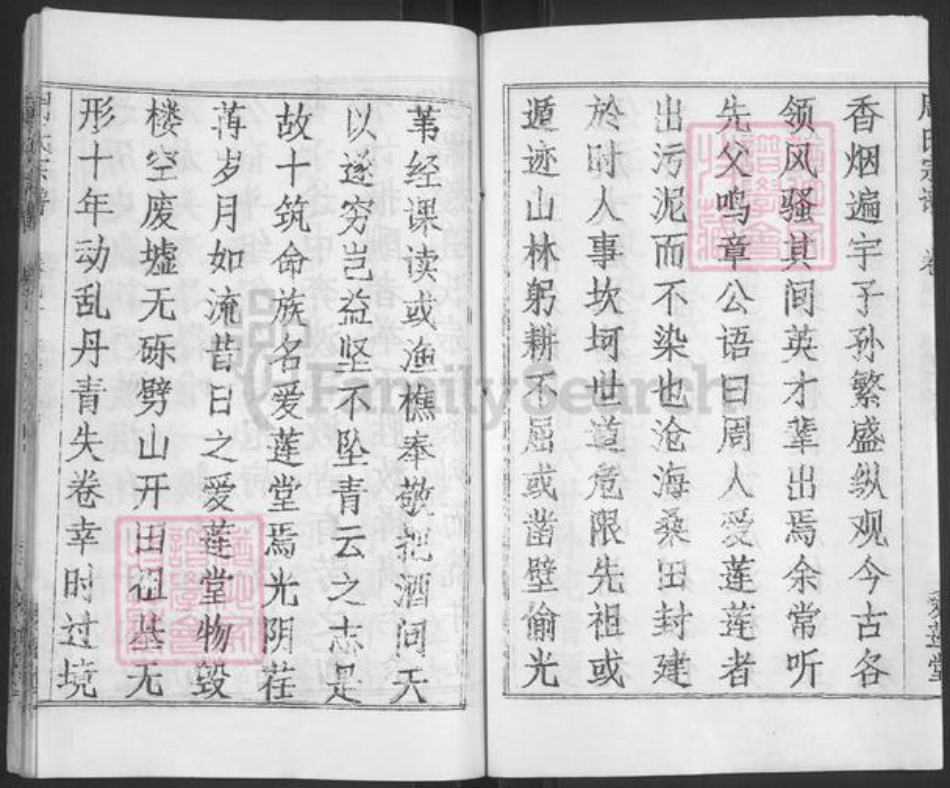 周氏宗谱 卷
香烟遍宇子孙繁盛纵观今古各
领风骚其间英才辈出焉余常听
先父鸣章公语曰周人爱莲莲者
出污泥而不染也沧海桑田封建
於时人事坎坷世道危限先祖或
遁迹山林躬耕不屈或凿壁偷光
苇经课读或渔樵奉敬把酒问天
以遂穷岂益坚不坠青云之志是
故十筑命族名爱莲堂焉光阴荏
苒岁月如流昔日之爱莲堂物毁
楼空废墟无砾劈山开田祖基无
形十年动乱丹青失卷幸时过境
FamilySearch